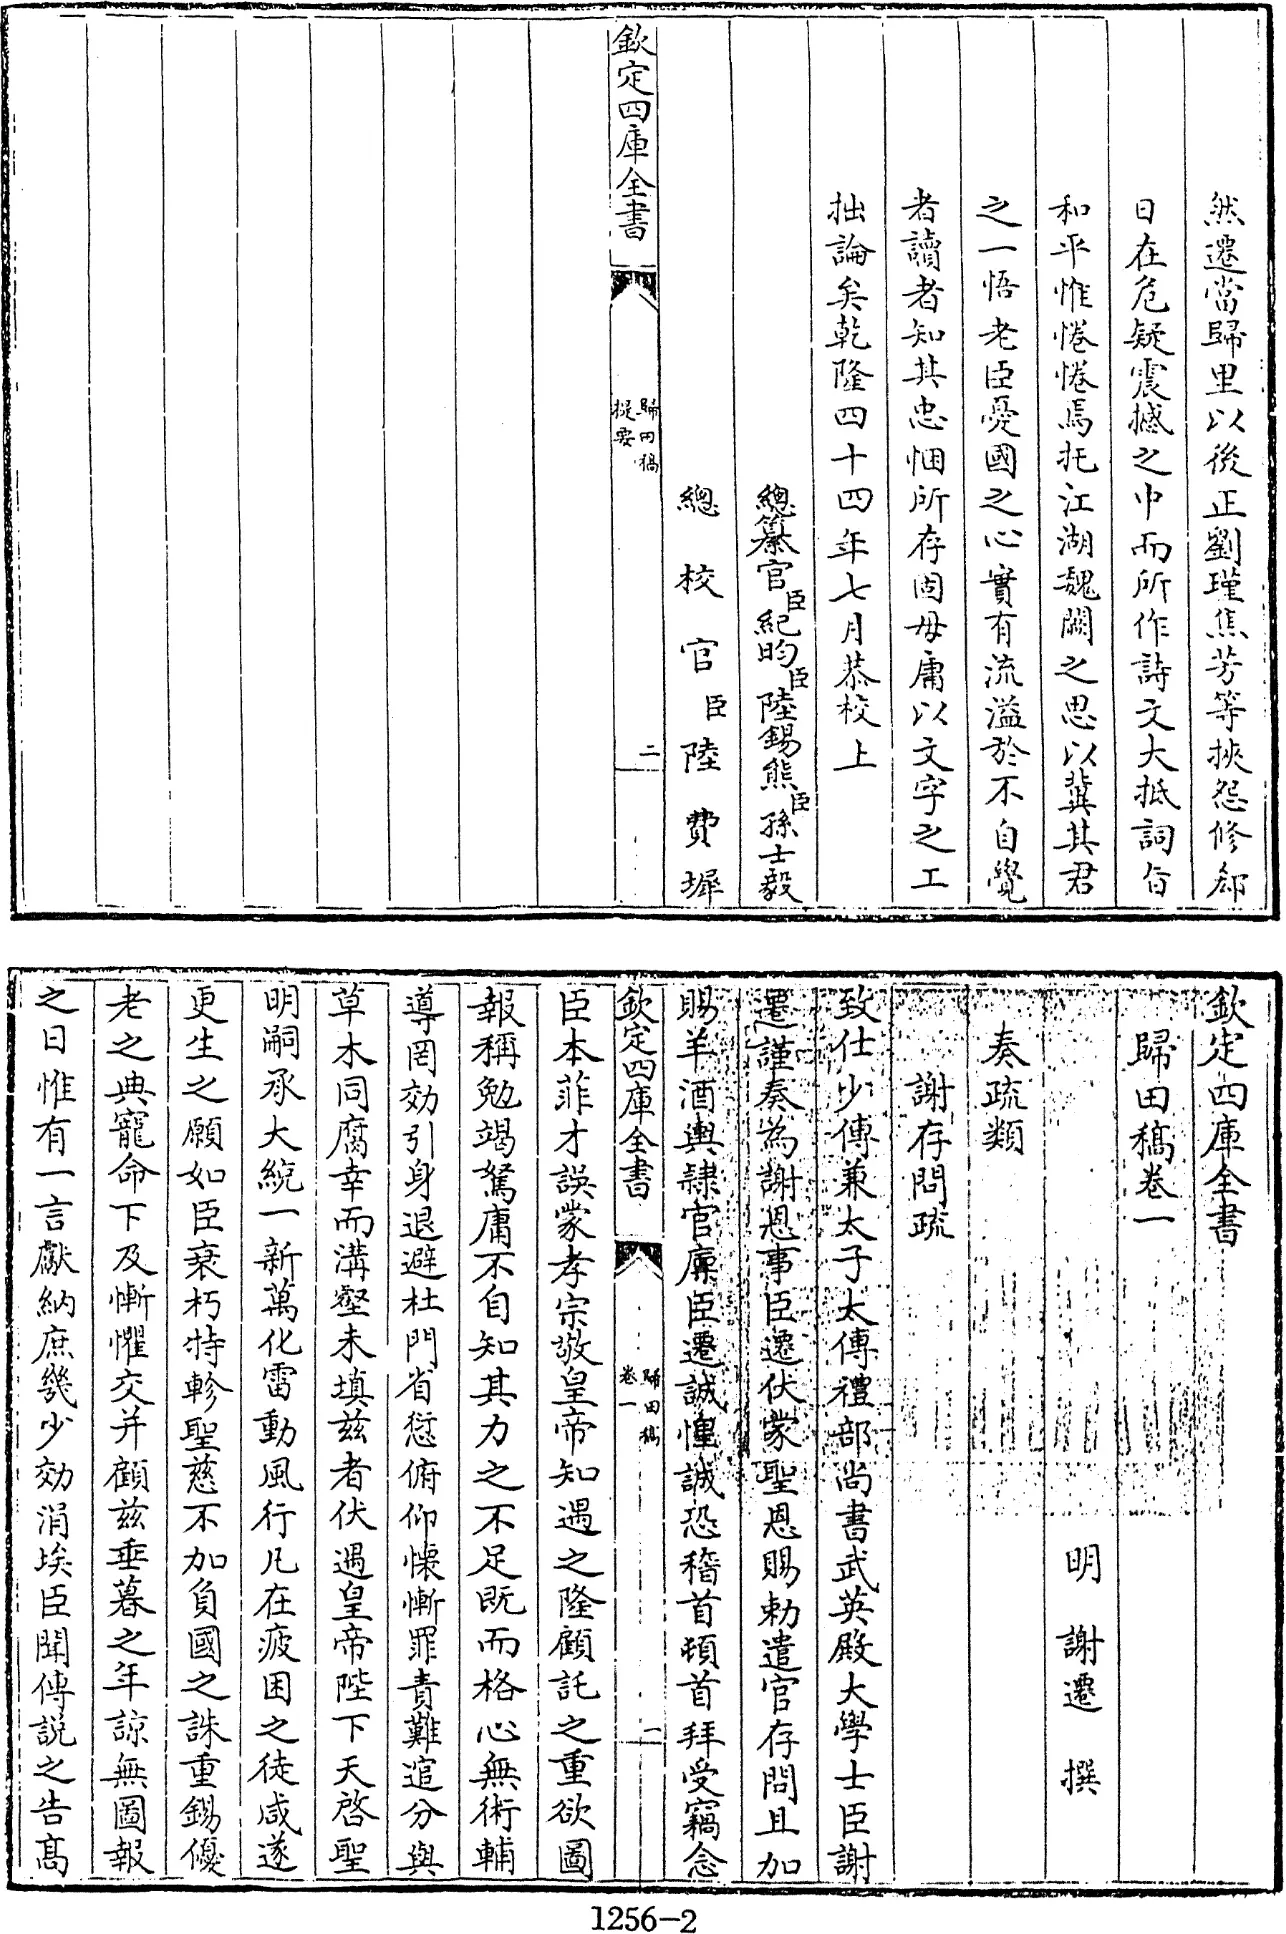 然遷當歸里以後正劉瑾焦芳等挾怨修郤
日在危疑震撼之中而所作詩文大抵詞旨
和平惟惓惓焉托江湖魏闕之思以冀其君
之一悟老臣憂國之心實有流溢於不自覺
者讀者知其忠悃所存固毋庸以文字之工
拙論矣乾隆四十四年七月恭校上
總纂官臣紀昀臣陸錫熊臣孫士毅
總校官臣陸費墀
欽定四庫全書
歸田稿
提要
二
欽定四庫全書
歸田稿卷一
明 謝遷 撰
奏疏類
謝存問疏
致仕少傅兼太子太傅禮部尚書武英殿大學士臣謝
遷謹奏為謝恩事臣遷伏蒙聖恩賜勅遣官存問且加
賜羊酒輿隸官廪臣遷誠惶誠恐稽首頓首拜受竊念
欽定四庫全書
歸田稿
卷一
一
臣本菲才誤蒙孝宗敬皇帝知遇之隆顧託之重欲圖
報稱勉竭駑庸不自知其力之不足既而格心無術輔
導罔効引身退避杜門省愆俯仰懷慚罪責難逭分與
草木同腐幸而溝壑未填兹者伏遇皇帝陛下天啓聖
明嗣承大統一新萬化雷動風行凡在疲困之徒咸遂
更生之願如臣衰朽特軫聖慈不加負國之誅重錫優
老之典寵命下及慚懼交并顧兹垂暮之年諒無圖報
之日惟有一言獻納庶幾少効涓埃臣聞傅說之告高
1256-2